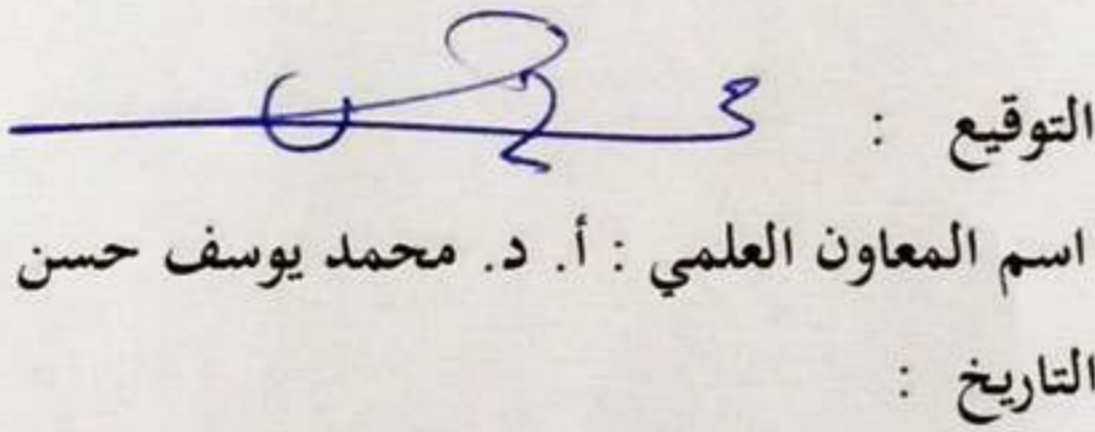 التوقيع :
اسم المعاون العلمي : أ. د. محمد يوسف حسن
التاريخ :